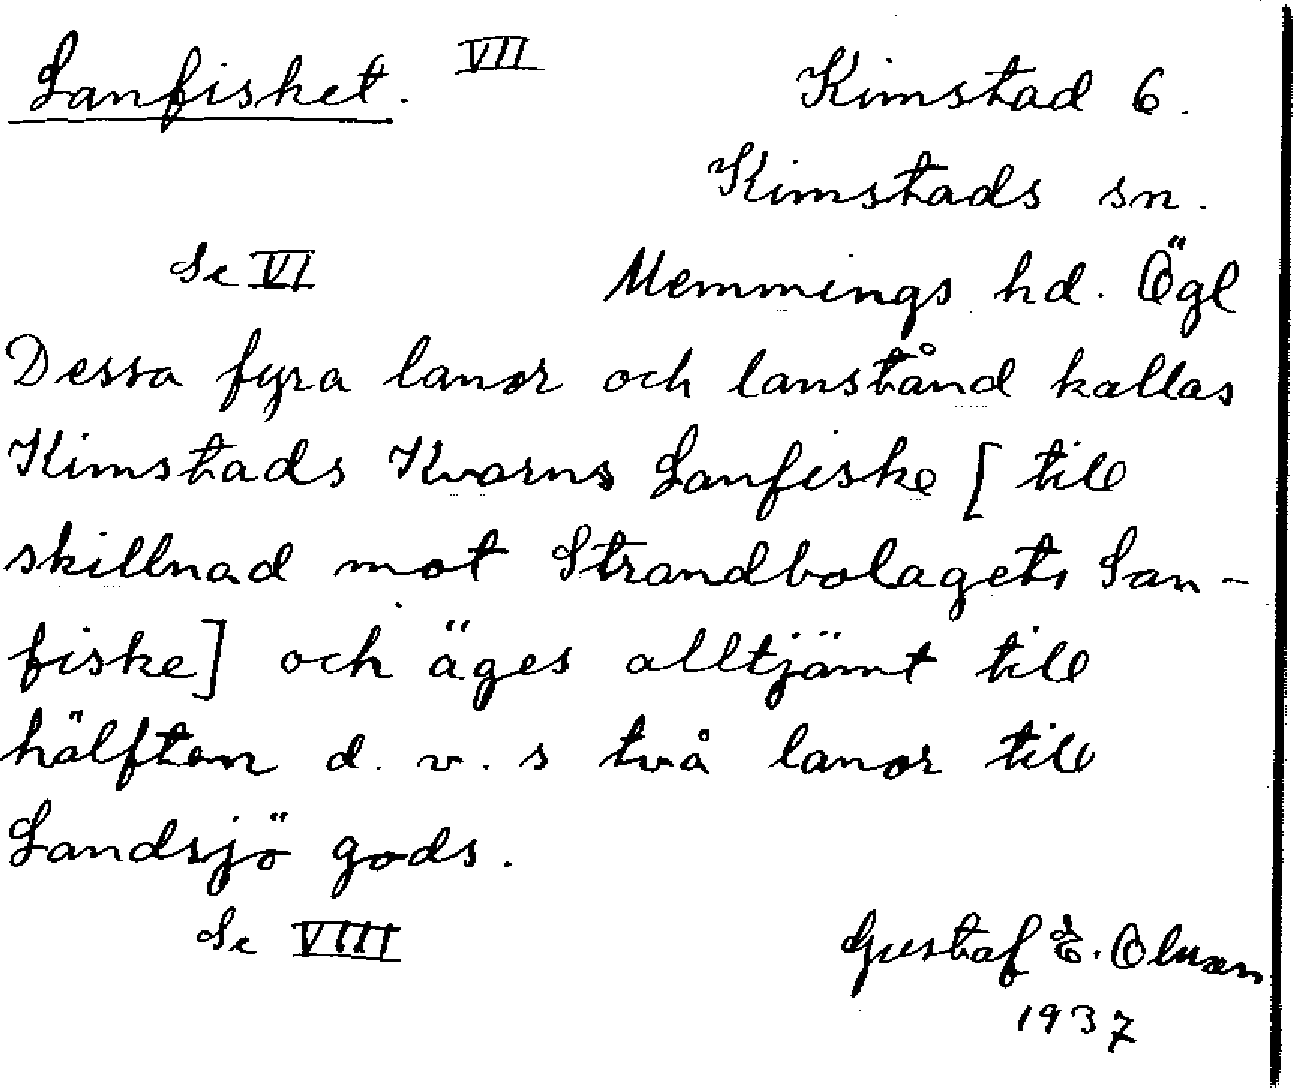 Lanfisket. VII Kimstad 6.
Kimstads sn.
Se VI Memmings hd. Ögl
Dessa fyra lanor och lanstånd kallas
Kimstads Kvarns Lanfiske [till
skillnad mot Strandbolagets Lan-
fiske] och äges alltjämt till
hälften d. v. s två lanor till
Landsjö gods.
Se VIII Gustaf E.
1937